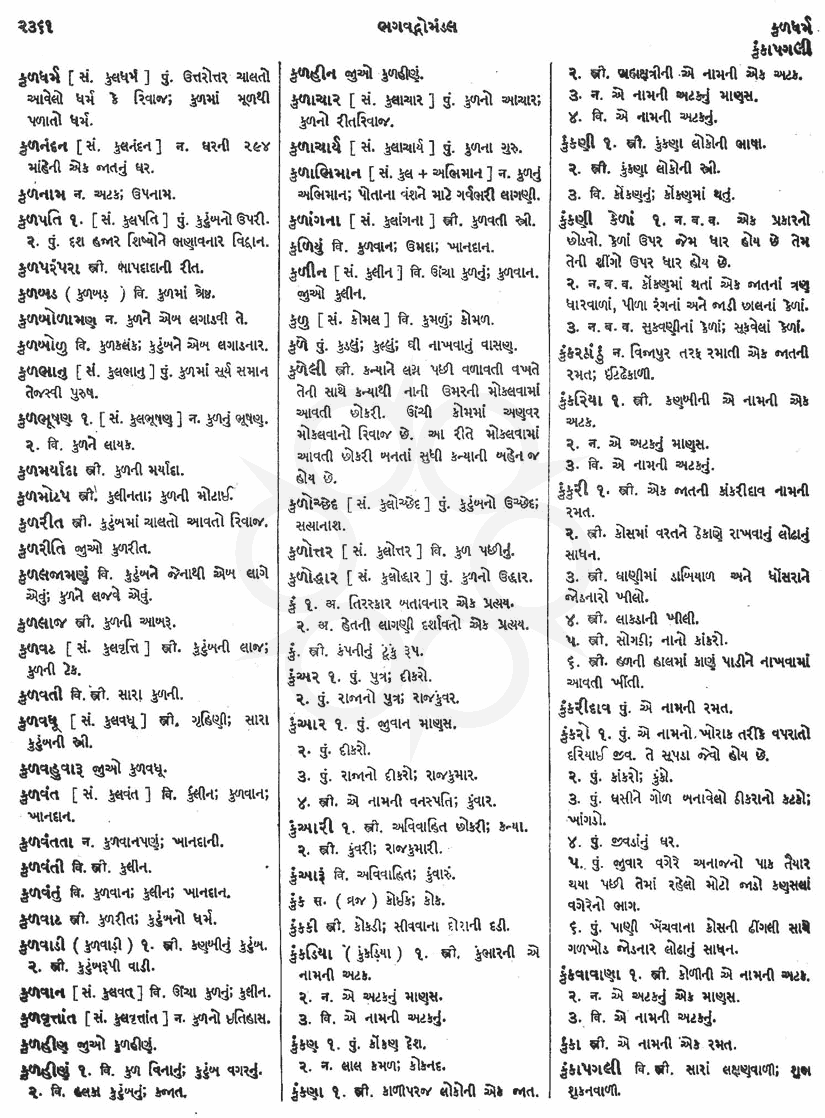 ૨૩૬૧
ભગવદ્ગોમંડલ
કુળધર્મ
કુંકાપગલી
કુળધર્મ [ સં. કુલધર્મ ] પું. ઉત્તરોત્તર ચાલતો
આવેલો ધર્મ કે રિવાજ; કુળમાં મૂળથી
પળાતો ધર્મ.
કુળનંદન [ સં. કુલનંદન ] ન. ઘરની ૨૯૪
માંહેની એક જાતનું ઘર.
કુળનામ ન. અટક; ઉપનામ.
કુળપતિ ૧. [ સં. કુલપતિ ] પું. કુટુંબનો ઉપરી.
૨. પું. દશ હજાર શિષ્યોને ભણાવનાર વિદ્વાન.
કુળપરંપરા સ્ત્રી. બાપદાદાની રીત.
કુળબડ ( કુળબડ઼ ) વિ. કુળમાં શ્રેષ્ઠ.
કુળબોળામણ ન. કુળને એબ લગાડવી તે.
કુળબોળુ વિ. કુળકલંક; કુટુંબને એબ લગાડનાર.
કુળભાનુ [ સં. કુલભાનુ ] પું. કુળમાં સૂર્ય સમાન
તેજસ્વી પુરુષ.
કુળભૂષણ ૧. [ સં. કુલભૂષણ ] ન. કુળનું ભૂષણ.
૨. વિ. કુળને લાયક.
કુળમર્યાદા સ્ત્રી. કુળની મર્યાદા.
કુળમોટપ સ્ત્રી. કુલીનતા; કુળની મોટાઈ.
કુળરીત સ્ત્રી. કુટુંબમાં ચાલતો આવતો રિવાજ.
કુળરીતિ જુઓ કુળરીત.
કુળલજામણું વિ. કુટુંબને જેનાથી એબ લાગે
એવું; કુળને લજવે એવું.
કુળલાજ સ્ત્રી. કુળની આબરૂ.
કુળવટ [ સં. કુલવૃત્તિ ] સ્ત્રી. કુટુંબની લાજ;
કુળની ટેક.
કુળવતી વિ. સ્ત્રી. સારા કુળની.
કુળવધૂ [ સં. કુલવધૂ ] સ્ત્રી. ગૃહિણી; સારા
કુટુંબની સ્ત્રી.
કુળવહુવારૂ જુઓ કુળવધૂ.
કુળવંત [ સં. કુલવંત ] વિ. કુલીન; કુળવાન;
ખાનદાન.
કુળવંતતા ન. કુળવાનપણું; ખાનદાની.
કુળવંતી વિ. સ્ત્રી. કુલીન.
કુળવંતું વિ. કુળવાન; કુલીન; ખાનદાન.
કુળવાટ સ્ત્રી. કુળરીત; કુટુંબનો ધર્મ.
કુળવાડી ( કુળવાડ઼ી ) ૧. સ્ત્રી. કણબીનું કુટુંબ.
૨. સ્ત્રી. કુટુંબરૂપી વાડી.
કુળવાન [ સં. કુલવત્ ] વિ. ઊંચા કુળનું; કુલીન.
કુળવૃત્તાંત [ સં. કુલવૃત્તાંત ] ન. કુળનો ઇતિહાસ.
કુળહીણ જુઓ કુળહીણું.
કુળહીણું ૧. વિ. કુળ વિનાનું; કુટુંબ વગરનું.
૨. વિ. હલકા કુટુંબનું; કજાત.
કુળહીન જુઓ કુળહીણું.
કુળાચાર [ સં. કુલાચાર ] પું. કુળનો આચાર;
કુળનો રીતરિવાજ.
કુળાચાર્ય [ સં. કુલાચાર્ય ] પું. કુળના ગુરુ.
કુળાભિમાન [ સં. કુલ + અભિમાન ] ન. કુળનું
અભિમાન; પોતાના વંશને માટે ગર્વભરી લાગણી.
કુળાંગના [ સં. કુલાંગના ] સ્ત્રી. કુળવતી સ્ત્રી.
કુળિયું વિ. કુળવાન; ઉમદા; ખાનદાન.
કુળીન [ સં. કુલીન ] વિ. ઊંચા કુળનું; કુળવાન.
જુઓ કુલીન.
કુળુ [ સં. કોમલ ] વિ. કુમળું; કોમળ.
કુળે પું. કુડલું; કુલ્લું; ઘી નાખવાનું વાસણ.
કુળેલી સ્ત્રી. કન્યાને લગ્ન પછી વળાવતી વખતે
તેની સાથે કન્યાથી નાની ઉમરની મોકલવામાં
આવતી છોકરી. ઊંચી કોમમાં અણવર
મોકલવાનો રિવાજ છે. આ રીતે મોકલવામાં
આવતી છોકરી બનતાં સુધી કન્યાની બહેન જ
હોય છે.
કુળોચ્છેદ [ સં. કુલોચ્છેદ ] પું. કુટુંબનો ઉચ્છેદ;
સત્યાનાશ.
કુળોત્તર [ સં. કુલોત્તર ] વિ. કુળ પછીનું.
કુળોદ્ધાર [ સં. કુલોદ્ધાર ] પું. કુળનો ઉદ્ધાર.
કું ૧. અ. તિરસ્કાર બતાવનાર એક પ્રત્યય.
૨. અ. હેતની લાગણી દર્શાવતો એક પ્રત્યય.
કું. સ્ત્રી. કંપનીનું ટૂંકું રૂપ.
કુંઅર ૧. પું. પુત્ર; દીકરો.
૨. પું. રાજાનો પુત્ર; રાજકુંવર.
કુંઆર ૧. પું. જુવાન માણસ.
૨. પું. દીકરો.
૩. પું. રાજાનો દીકરો; રાજકુમાર.
૪. સ્ત્રી. એ નામની વનસ્પતિ; કુંવાર.
કુંઆરી ૧. સ્ત્રી. અવિવાહિત છોકરી; કન્યા.
૨. સ્ત્રી. કુંવરી; રાજકુમારી.
કુંઆરૂં વિ. અવિવાહિત; કુંવારું.
કુંક સ. ( વ્રજ ) કોઈક; કોક.
કુંકકી સ્ત્રી. કોકડી; સીવવાના દોરાની દડી.
કુંકડિયા ( કુંકડ઼િયા ) ૧. સ્ત્રી. કુંભારની એ
નામની અટક.
૨. ન. એ અટકનું માણસ.
૩. વિ. એ નામની અટકનું.
કુંકણ ૧. પું. કોંકણ દેશ.
૨. ન. લાલ કમળ; કોકનદ.
કુંકણા ૧. સ્ત્રી. કાળીપરજ લોકોની એક જાત.
૨. સ્ત્રી. બ્રહ્મક્ષત્રીની એ નામની એક અટક.
૩. ન. એ નામની અટકનું માણસ.
૪. વિ. એ નામની અટકનું.
કુંકણી ૧. સ્ત્રી. કુંકણા લોકોની ભાષા.
૨. સ્ત્રી. કુંકણા લોકોની સ્ત્રી.
૩. વિ. કોંકણનું; કોંકણમાં થતું.
કુંકણી કેળાં ૧. ન. બ. વ. એક પ્રકારનો
છોડવો. કેળાં ઉપર જેમ ધાર હોય છે તેમ
તેની શીંગો ઉપર ધાર હોય છે.
૨. ન. બ. વ. કોંકણમાં થતાં એક જાતનાં ત્રણ
ધારવાળાં, પીળા રંગનાં અને જાડી છાલનાં કેળાં.
૩. ન. બ. વ. સુકવણીનાં કેળાં; સૂકવેલાં કેળાં.
કુંકરદાંડુ ન. વિજાપુર તરફ રમાતી એક જાતની
રમત; ઈંટેકાળી.
કુંકરિયા ૧. સ્ત્રી. કણબીની એ નામની એક
અટક.
૨. ન. એ અટકનું માણસ.
૩. વિ. એ નામની અટકનું.
કુંકરી ૧. સ્ત્રી. એક જાતની કાંકરીદાવ નામની
રમત.
૨. સ્ત્રી. કોસમાં વરતને ઠેકાણે રાખવાનું લોઢાનું
સાધન.
૩. સ્ત્રી. ઘાણીમાં ડાબિયાળ અને ધોંસરાને
જોડનારો ખીલો.
૪. સ્ત્રી. લાકડાની ખીલી.
૫. સ્ત્રી. સોગઠી; નાનો કાંકરો.
૬. સ્ત્રી. હળની હાલમાં કાણું પાડીને નાખવામાં
આવતી ખીંતી.
કુંકરીદાવ પું. એ નામની રમત.
કુંકરો ૧. પું. એ નામનો ખોરાક તરીકે વપરાતો
દરિયાઈ જીવ. તે સૂપડા જેવો હોય છે.
૨. પું. કાંકરો; કુંકો.
૩. પું. ઘસીને ગોળ બનાવેલો ઠીકરાનો કટકો;
ખાંગડો.
૪. પું. જીવડાંનું ઘર.
૫. પું. જુવાર વગેરે અનાજનો પાક તૈયાર
થયા પછી તેમાં રહેલો મોટો જાડો કણસલાં
વગેરેનો ભાગ.
૬. પું. પાણી ખેંચવાના કોસની ઢીંગલી સાથે
ગળખોડ જોડનાર લોઢાનું સાધન.
કુંકવાવાણા ૧. સ્ત્રી. કોળીની એ નામની અટક.
૨. ન. એ અટકનું એક માણસ.
૩. વિ. એ નામની અટકનું.
કુંકા સ્ત્રી. એ નામની એક રમત.
કુંકાપગલી વિ. સ્ત્રી. સારાં લક્ષણવાળી; શુભ
શુકનવાળી.